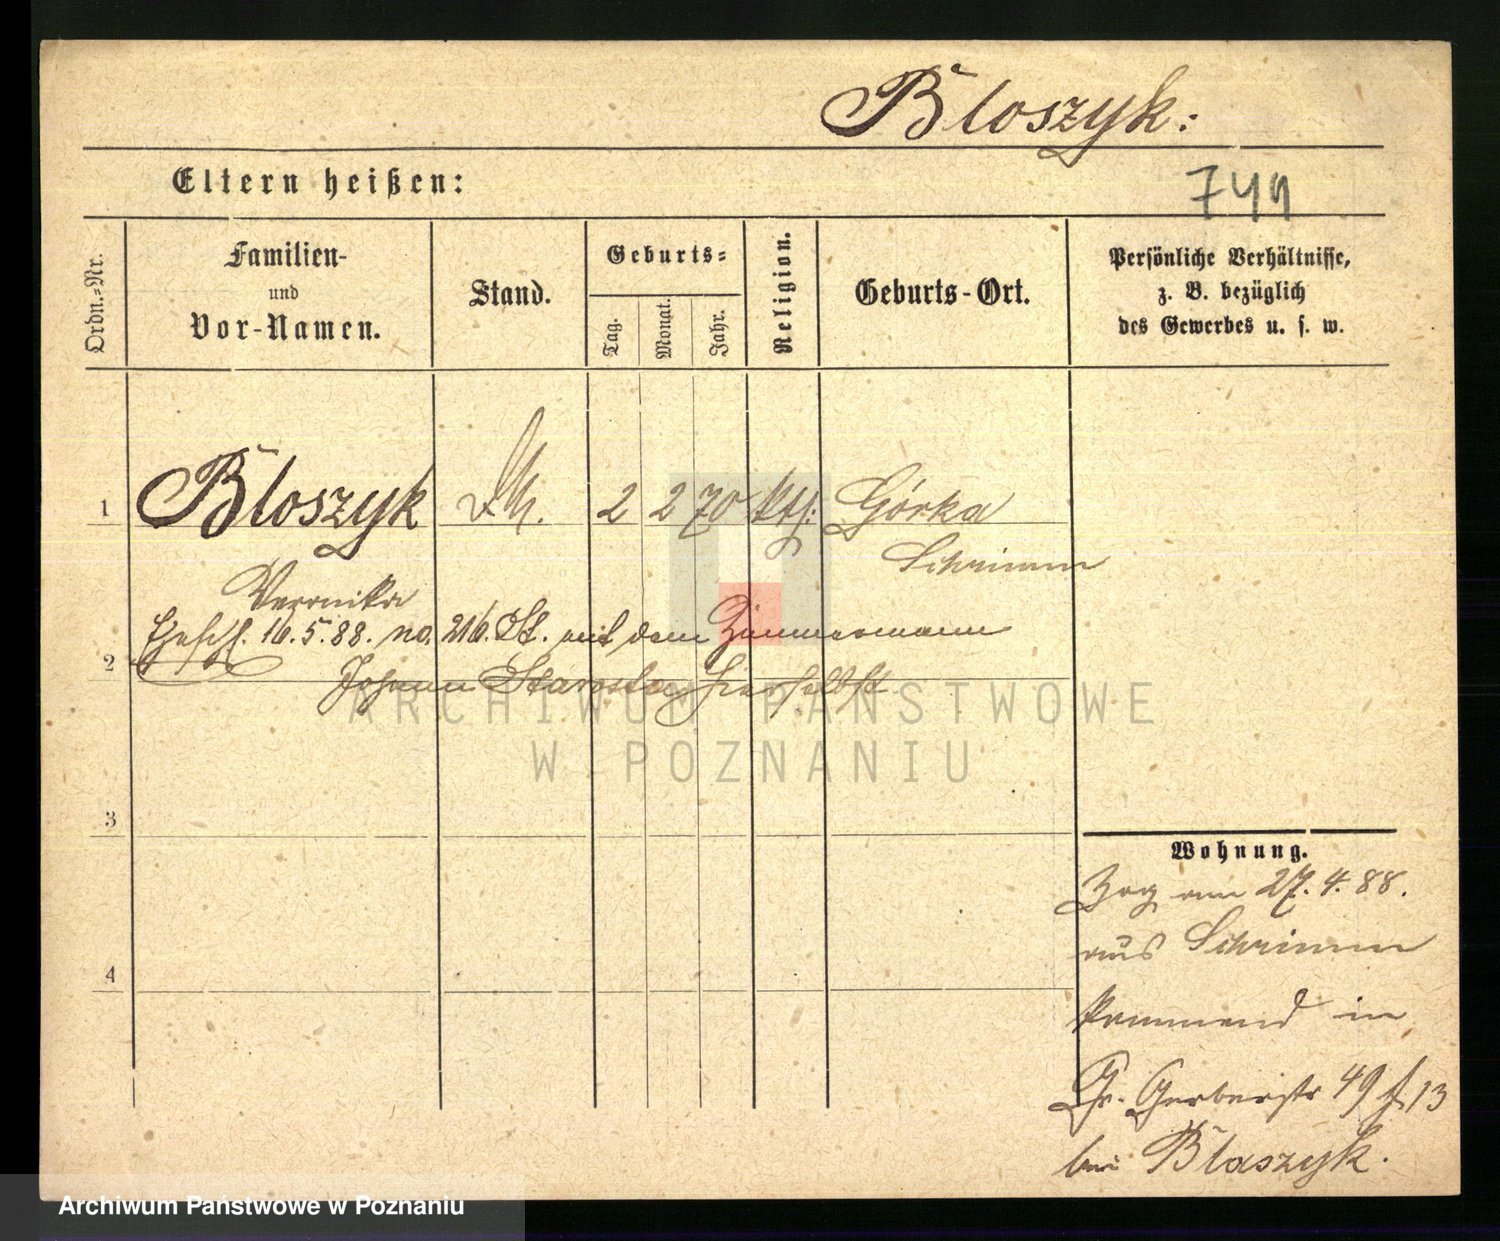 Bloszyk:
Eltern heißen:
749
Ordn.-Nr.
Familien-
und
Vor-Namen.
Stand.
Geburts-
Tag.
Monat.
Jahr.
Religion.
Geburts-Ort.
Persönliche Verhältnisse,
z. B. bezüglich
des Gewerbes u. s. w.
1 Bloszyk 2 2 70 kth: Górka
Schrimm
Veronika
Ehesch. 16.5.88. no. 216. St. mit dem Zimmermann
2
Johann Starosta hierselbst
ARCHIWUM PAŃSTWOWE
W POZNANIU
3
Wohnung.
Zog am 27.4.88.
aus Schrimm
kommend in
4
Gr. Gerberstr 49 f. 13
bei Blaszyk.
Archiwum Państwowe w Poznaniu